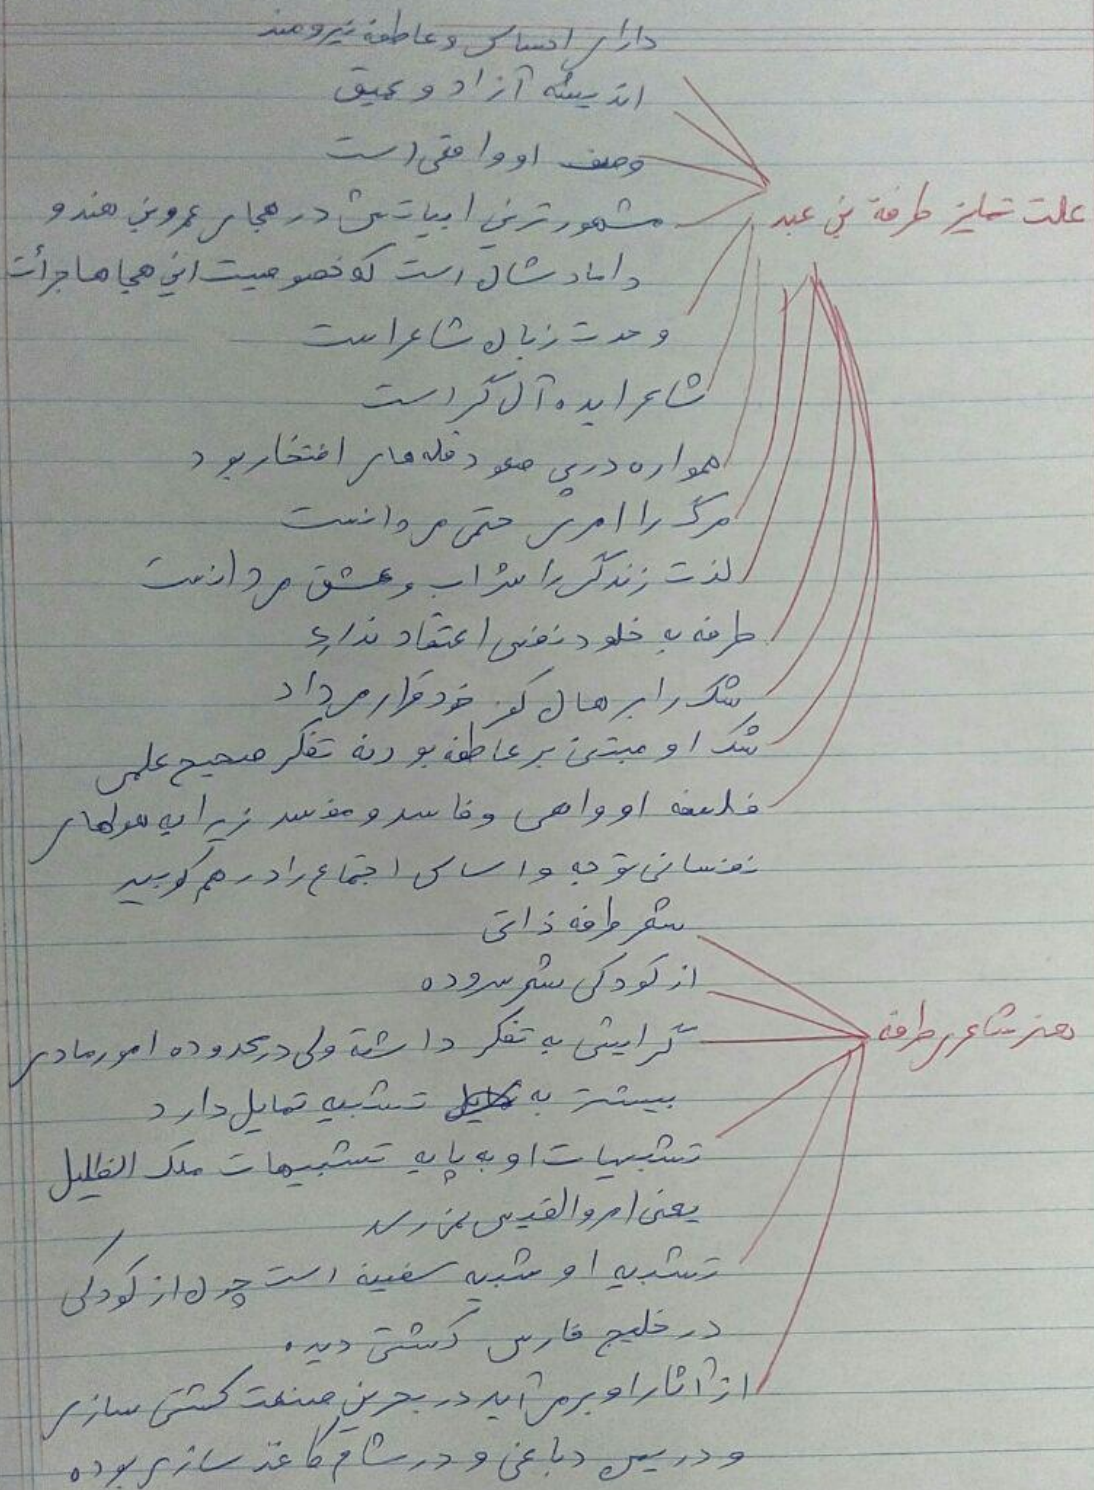 دارای احساس و عاطفه نیرومند
اندیشه آزاد و عمیق
وصف او واقعی است
علت تمایز طرفة بن عبد
مشهورترین ابیاتش در هجای عمروبن هند و
دامادشان است که خصوصیت این هجاها جرأت
و حدت زبان شاعر است
شاعر ایده آل گر است
همواره در پی صعود قله های افتخار بود
مرگ را امری حتمی می دانست
لذت زندگی را شراب و عشق می دانست
طرفه به خلود نفس اعتقاد ندارد
شک را برهان کفر خود قرار می داد
شک او مبتنی بر عاطفه بود نه تفکر صحیح علمی
فلسفه او واهی و فاسد و مفسد زیرا به هواهای
نفسانی توجه و اساس اجتماع را درهم کوبید
شعر طرفه ذاتی
از کودکی شعر سروده
هنر شاعری طرفه
گرایش به تفکر داشته ولی در محدوده امور مادی
بیشتر به تشبیه تمایل دارد
تشبیهات او به پایه تشبیهات ملک الظلیل
یعنی امروالقیس نمی رسد
تشبیه او شبیه سفینه است چون از کودکی
در خلیج فارس کشتی دیده
از آثار او برمی آید در بحرین صنعت کشتی سازی
و در یمن دباغی و در شام کاغذ سازی بوده